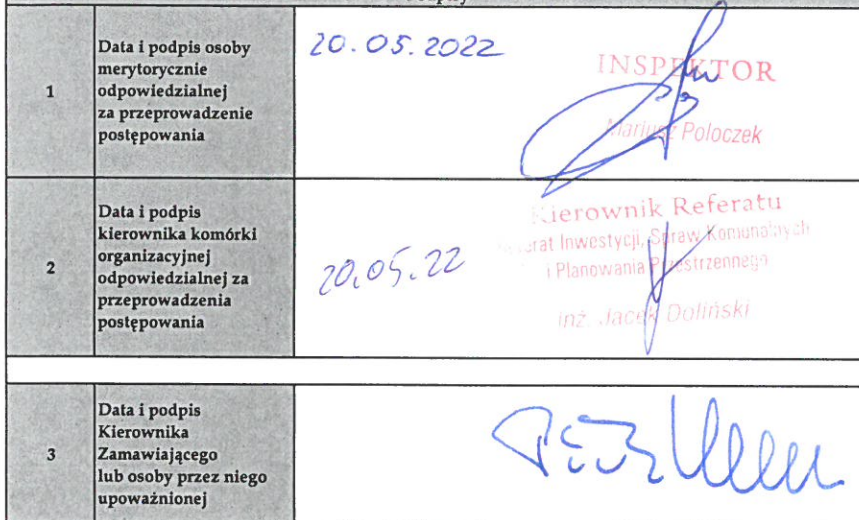 1
Data i podpis osoby
merytorycznie
odpowiedzialnej
za przeprowadzenie
postępowania
20.05.2022
INSPEKTOR
Mariusz Poloczek
2
Data i podpis
kierownika komórki
organizacyjnej
odpowiedzialnej za
przeprowadzenia
postępowania
20.05.22
Kierownik Referatu
Inwestycji, Spraw Komunalnych
i Planowania Przestrzennego
inż. Jacek Doliński
3
Data i podpis
Kierownika
Zamawiającego
lub osoby przez niego
upoważnionej